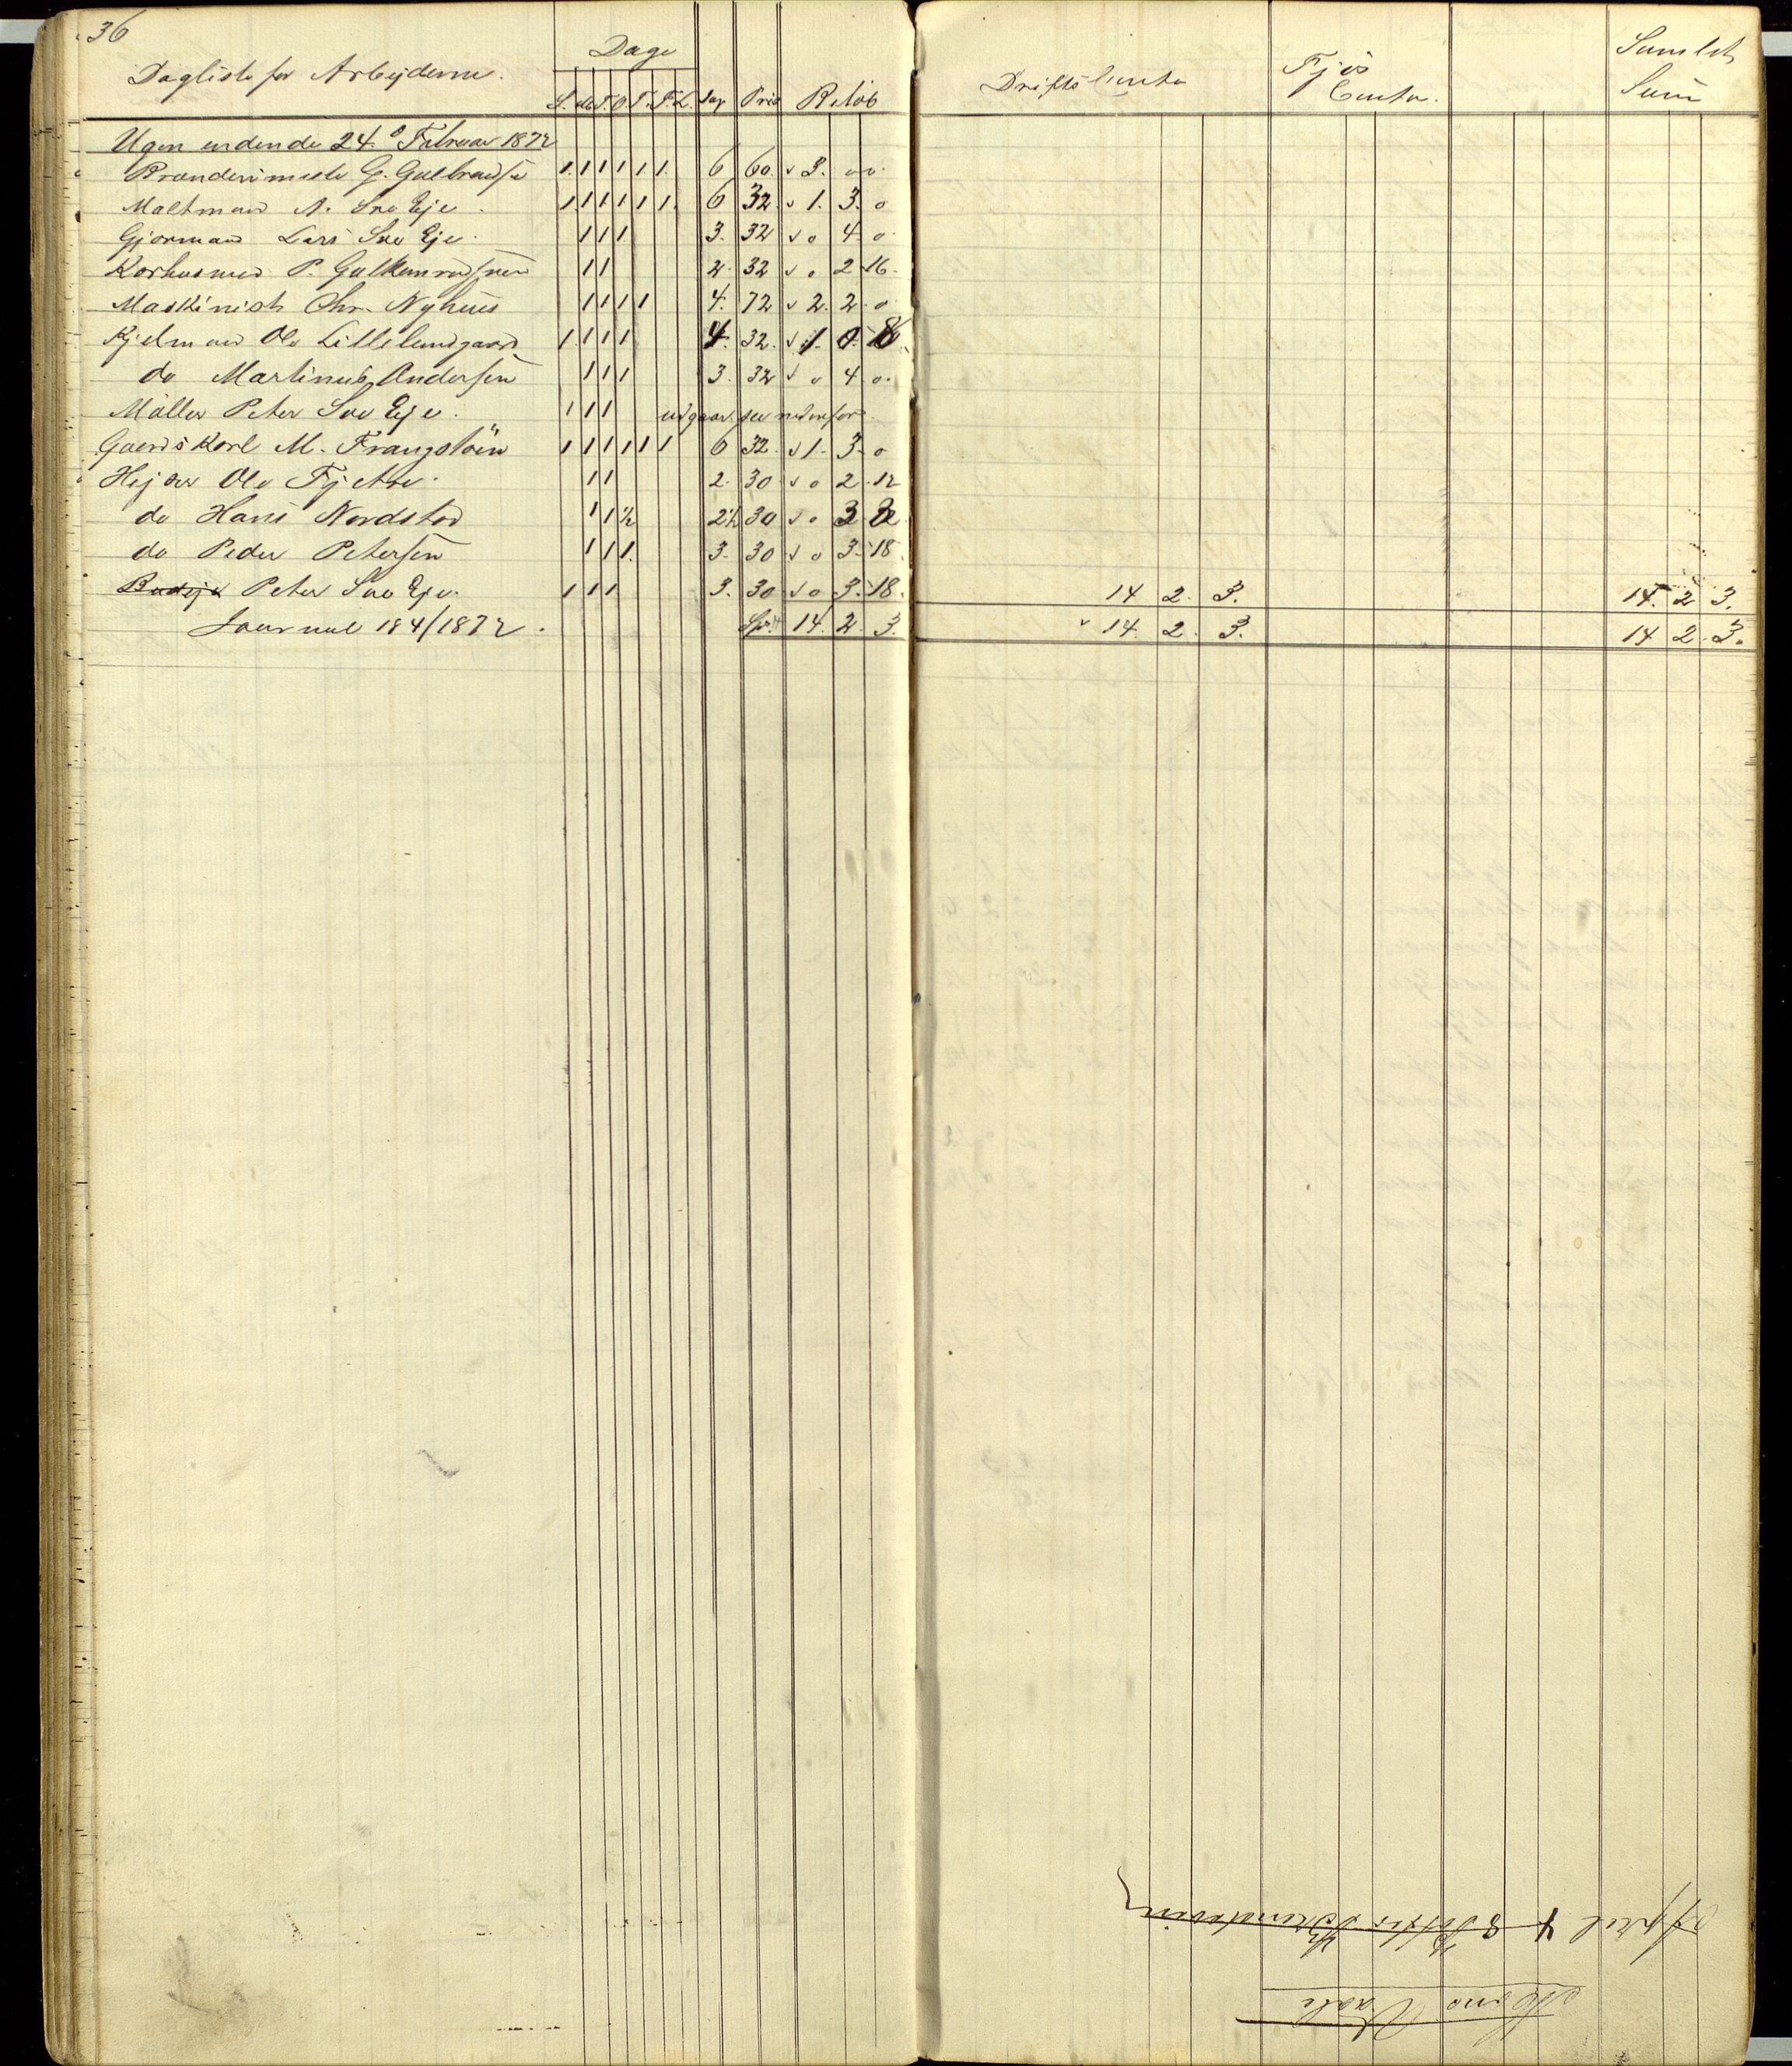 36
Dagliste for Arbejderne.
Dage
S. M. T. O. T. F. L. Dag Pris Beløb
Driftsconto
Fjøs Conto.
Samlet Sum
Ugen endende 24de Februar 1872
Brænderimester G. Gulbrandse 1. 1 1 1 1 1. 6 60. v 3. o o.
Maltmand A. Sve Eje. 1. 1 1 1 1 1. 6 32 v 1. 3. o
Gjørmand Lars Sve Eje. 1 1 1 3. 32 v o 4. o
P. 1 1 2. 32 v o 2 16.
Maskinist Chr. Nyhuus 1 1 1 1 4. 72 v 2. 2. o
Kjelmand Ole Lillelundgaard 1 1 1 1 4. 32. v 1. 0. 8
do Martinus Andersen 1 1 1 3. 32 v o 4 o.
Møller Peter Sve Eje. 1 1 1 udgaar, see nedenfor
Gaardskarl M. Frangstøen 1 1 1 1 1 1 6 32. v 1. 3. o
Hejser Ole Fjetre. 1 1 2. 30 v o 2. 12
do Hans Nordstad 1 1 ½ 2½ 30 v o 3
do Peder Petersen 1 1 1. 3. 30 v o 3. 18.
Peter Sve Eje. 1 1 1 3. 30 v o 3. 18. 14 2. 3. 14. 2 3.
Journal 184/1872. Spd. 14. 2. 3. v 14. 2. 3. 14 2. 3.
April 4 8 Potter Brændeviin